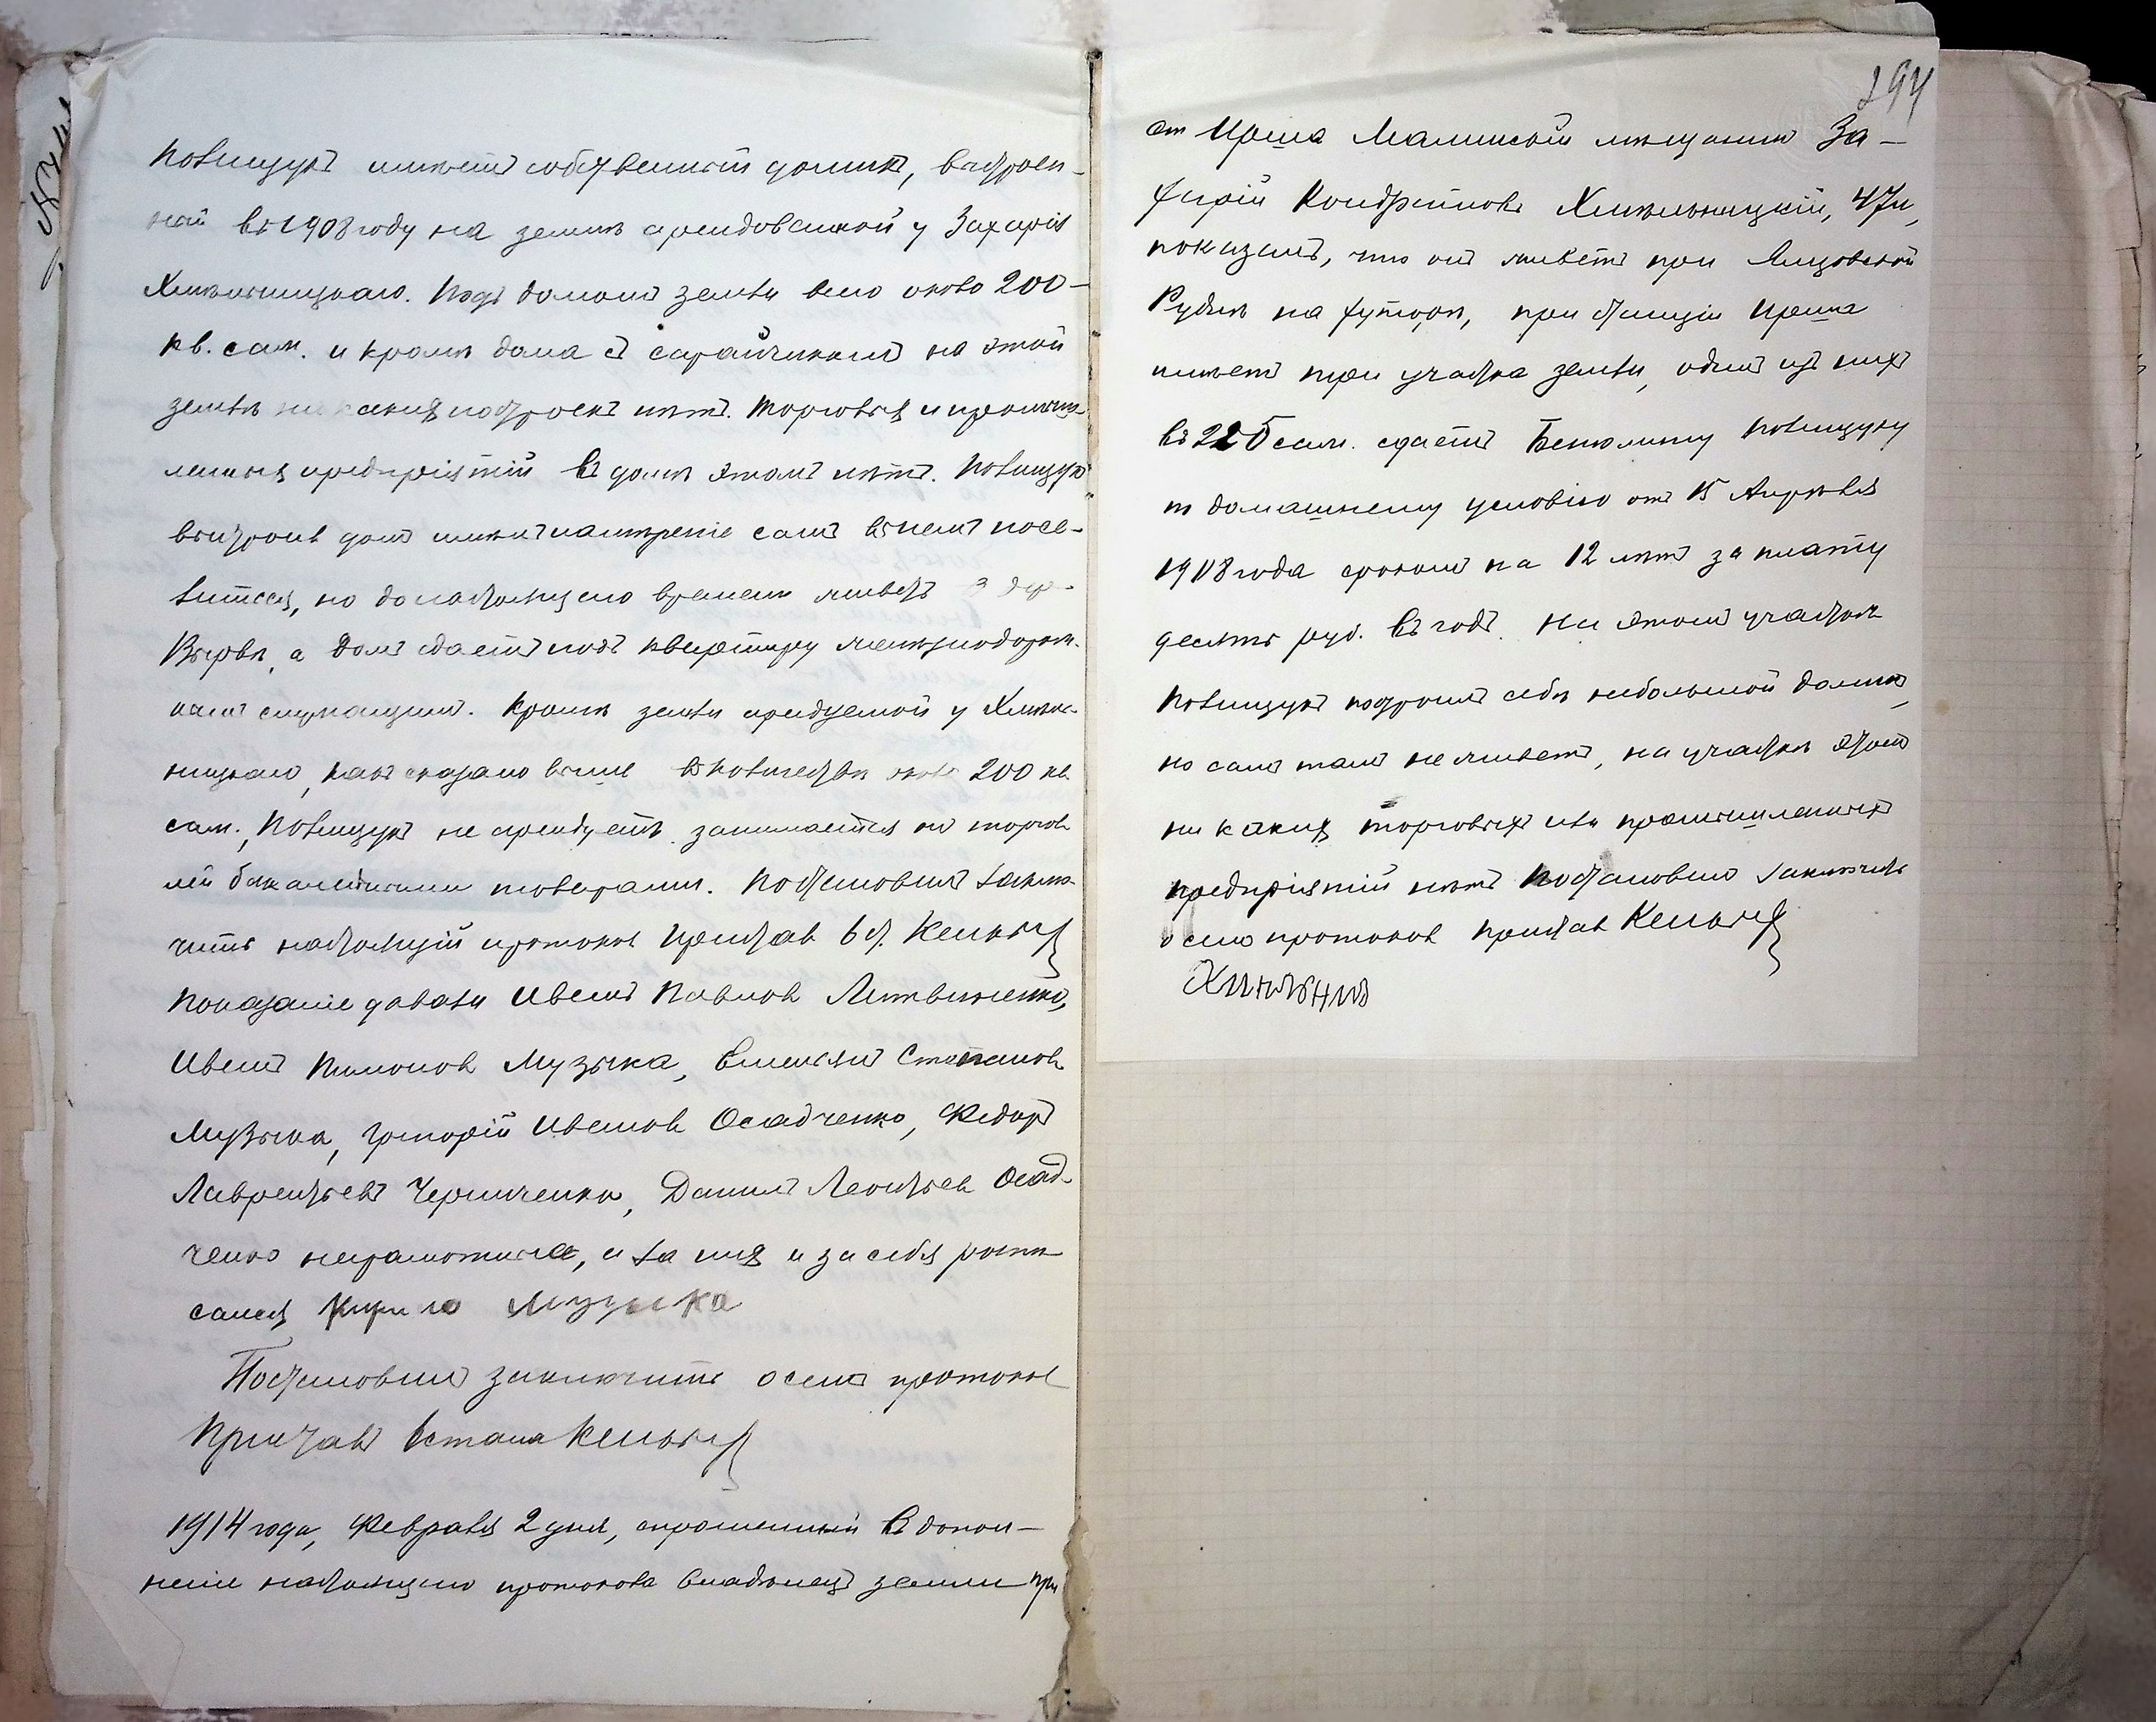 Новицукъ имѣетъ собственный домикъ, выстроен-
ный въ 1908 году на землѣ арендованной у Захарія
Хмѣльницкаго. Подъ домомъ земли всего около 200
кв. саж. и кромѣ дома съ сарайчикомъ на этой
землѣ никакихъ построекъ нѣтъ. Торговыхъ и промыш-
ленныхъ предпріятій въ домѣ этомъ нѣтъ. Новицукъ
выстроивъ домъ имѣлъ намѣреніе самъ въ немъ посе-
литься, но до настоящаго времени живетъ въ дер.
Вырвѣ, а домъ сдаетъ подъ квартиру желѣзнодорож-
нымъ служащимъ. Кромѣ земли арендуемой у Хмѣль-
ницкаго, какъ сказано выше въ количествѣ около 200 кв.
саж., Новицукъ не арендуетъ занимается онъ торгов-
лей бакалейными товарами. Постановилъ заклю-
чить настоящій протоколъ Приставъ 6 ст.
Показаніе давали Иванъ Павловъ Литвиненко,
Иванъ Пимоновъ Музыка, Степановъ
Музыка, Григорій Ивановъ Осадченко, Федоръ
Лаврентьевъ Черниченко, Данилъ Леонтьевъ Осад-
ченко неграмотные, а за нихъ и за себя роспи-
сался Кирило Музыка
Постановилъ заключить о семъ протоколъ
Приставъ 6 стана
1914 года, Февраля 2 дня, спрошенный въ допол-
неніе настоящаго протокола владѣлецъ земли при
294
ст Ирша Малинскій мѣщанинъ За-
харій Кондратовъ Хмѣльницкій, 47 л,
показалъ, что онъ живетъ при Янцовской
Руднѣ на хуторѣ, при станціи Ирша
имѣетъ три участка земли, одинъ изъ нихъ
въ 225 саж. сдаетъ Беньомину Новицуку
по домашнему условію отъ 15 Апрѣля
1908 года срокомъ на 12 лѣтъ за плату
десять руб. въ годъ. На этомъ участкѣ
Новицукъ построилъ себѣ небольшой домикъ,
но самъ тамъ не живетъ, на участкѣ этомъ
ни какихъ торговыхъ или промышленныхъ
предпріятій нѣтъ Постановилъ заключить
о семъ протоколъ Приставъ